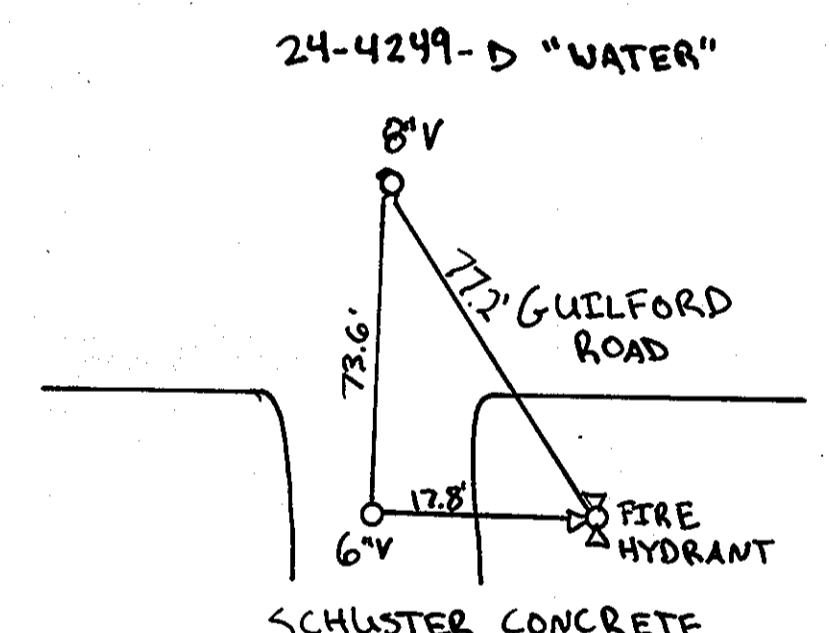 24-4249-D "WATER"
8"V
77.2'
GUILFORD
ROAD
73.6'
17.8'
6"V
FIRE
HYDRANT
SCHUSTER CONCRETE